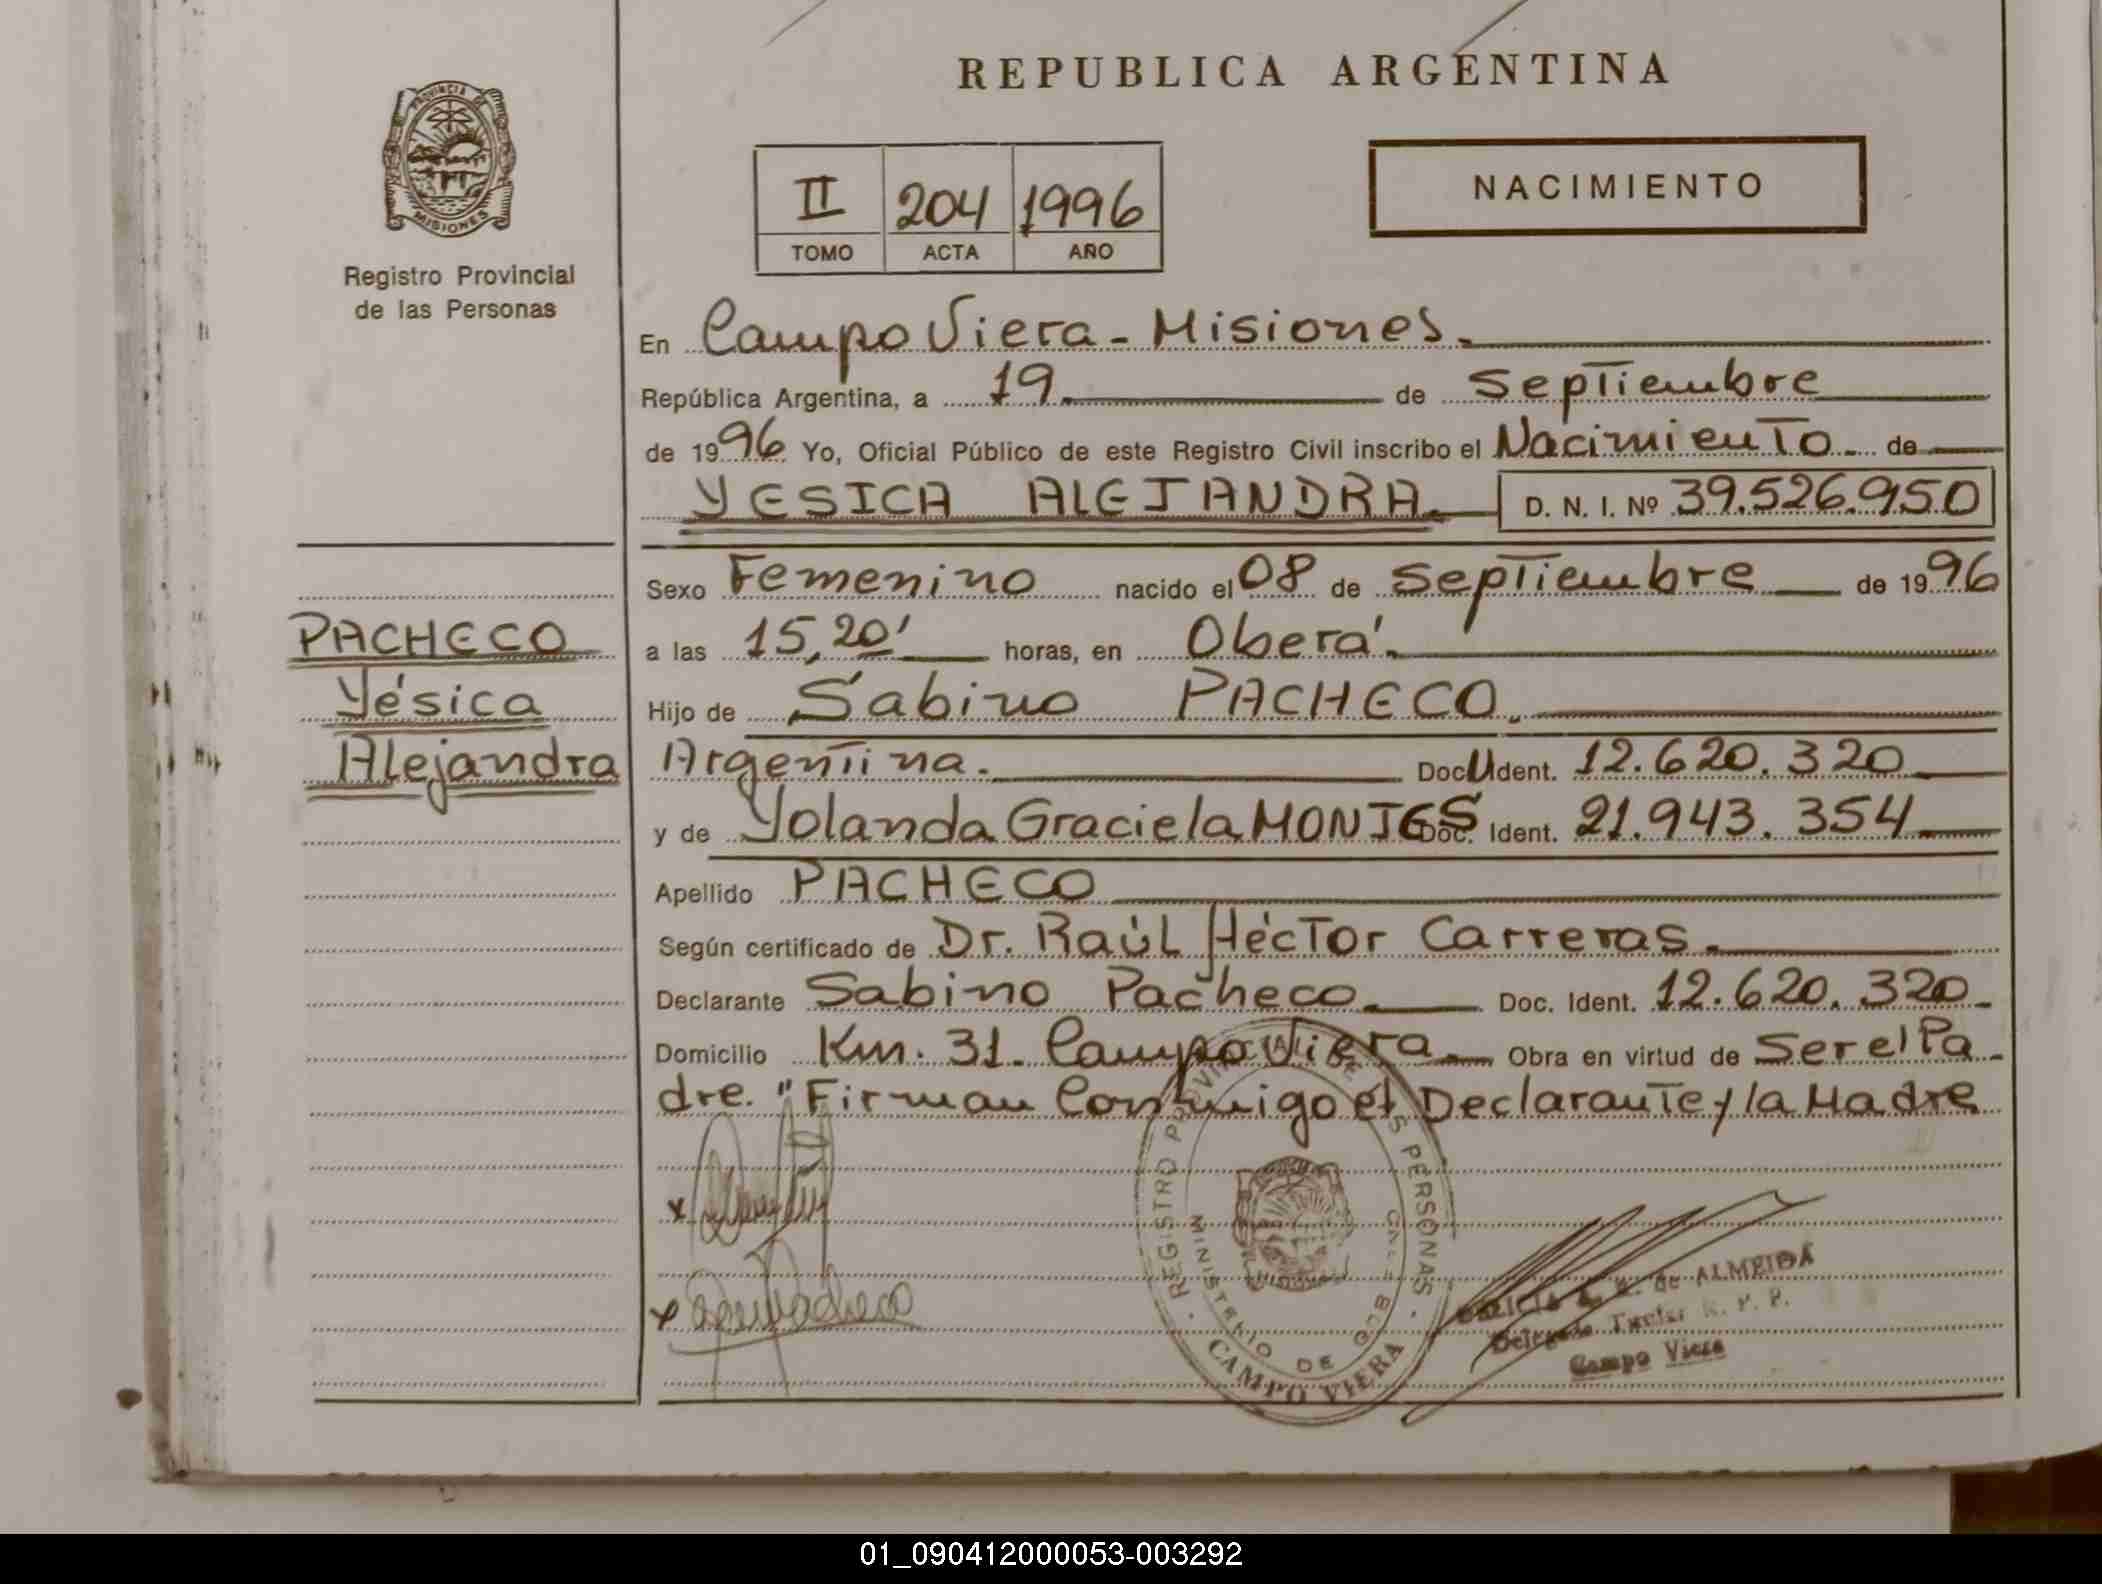 REPUBLICA ARGENTINA
PROVINCIA DE
MISIONES
Registro Provincial
de las Personas
II 204 1996
TOMO ACTA AÑO
NACIMIENTO
En Campo Viera - Misiones.
República Argentina, a 19 de Septiembre
de 1996 Yo, Oficial Público de este Registro Civil inscribo el Nacimiento de
YESICA ALEJANDRA. D. N. I. Nº 39.526.950
PACHECO
Yésica
Alejandra
Sexo Femenino nacido el 08 de Septiembre de 1996
a las 15,20' horas, en Oberá.
Hijo de Sabino PACHECO.
Argentina. Doc U Ident. 12.620.320
y de Yolanda Graciela MONJES Doc. Ident. 21.943.354
Apellido PACHECO
Según certificado de Dr. Raúl Héctor Carreras.
Declarante Sabino Pacheco. Doc. Ident. 12.620.320
Domicilio Km. 31. Campo Viera. Obra en virtud de Ser el Pa
dre. "Firman Conmigo el Declarante y la Madre
x
x Pacheco
REGISTRO PROVINCIAL DE LAS PERSONAS
MINISTERIO DE GOB
CAMPO VIERA
de ALMEIDA
Delegada Titular R. P. P.
Campo Viera
01_090412000053-003292